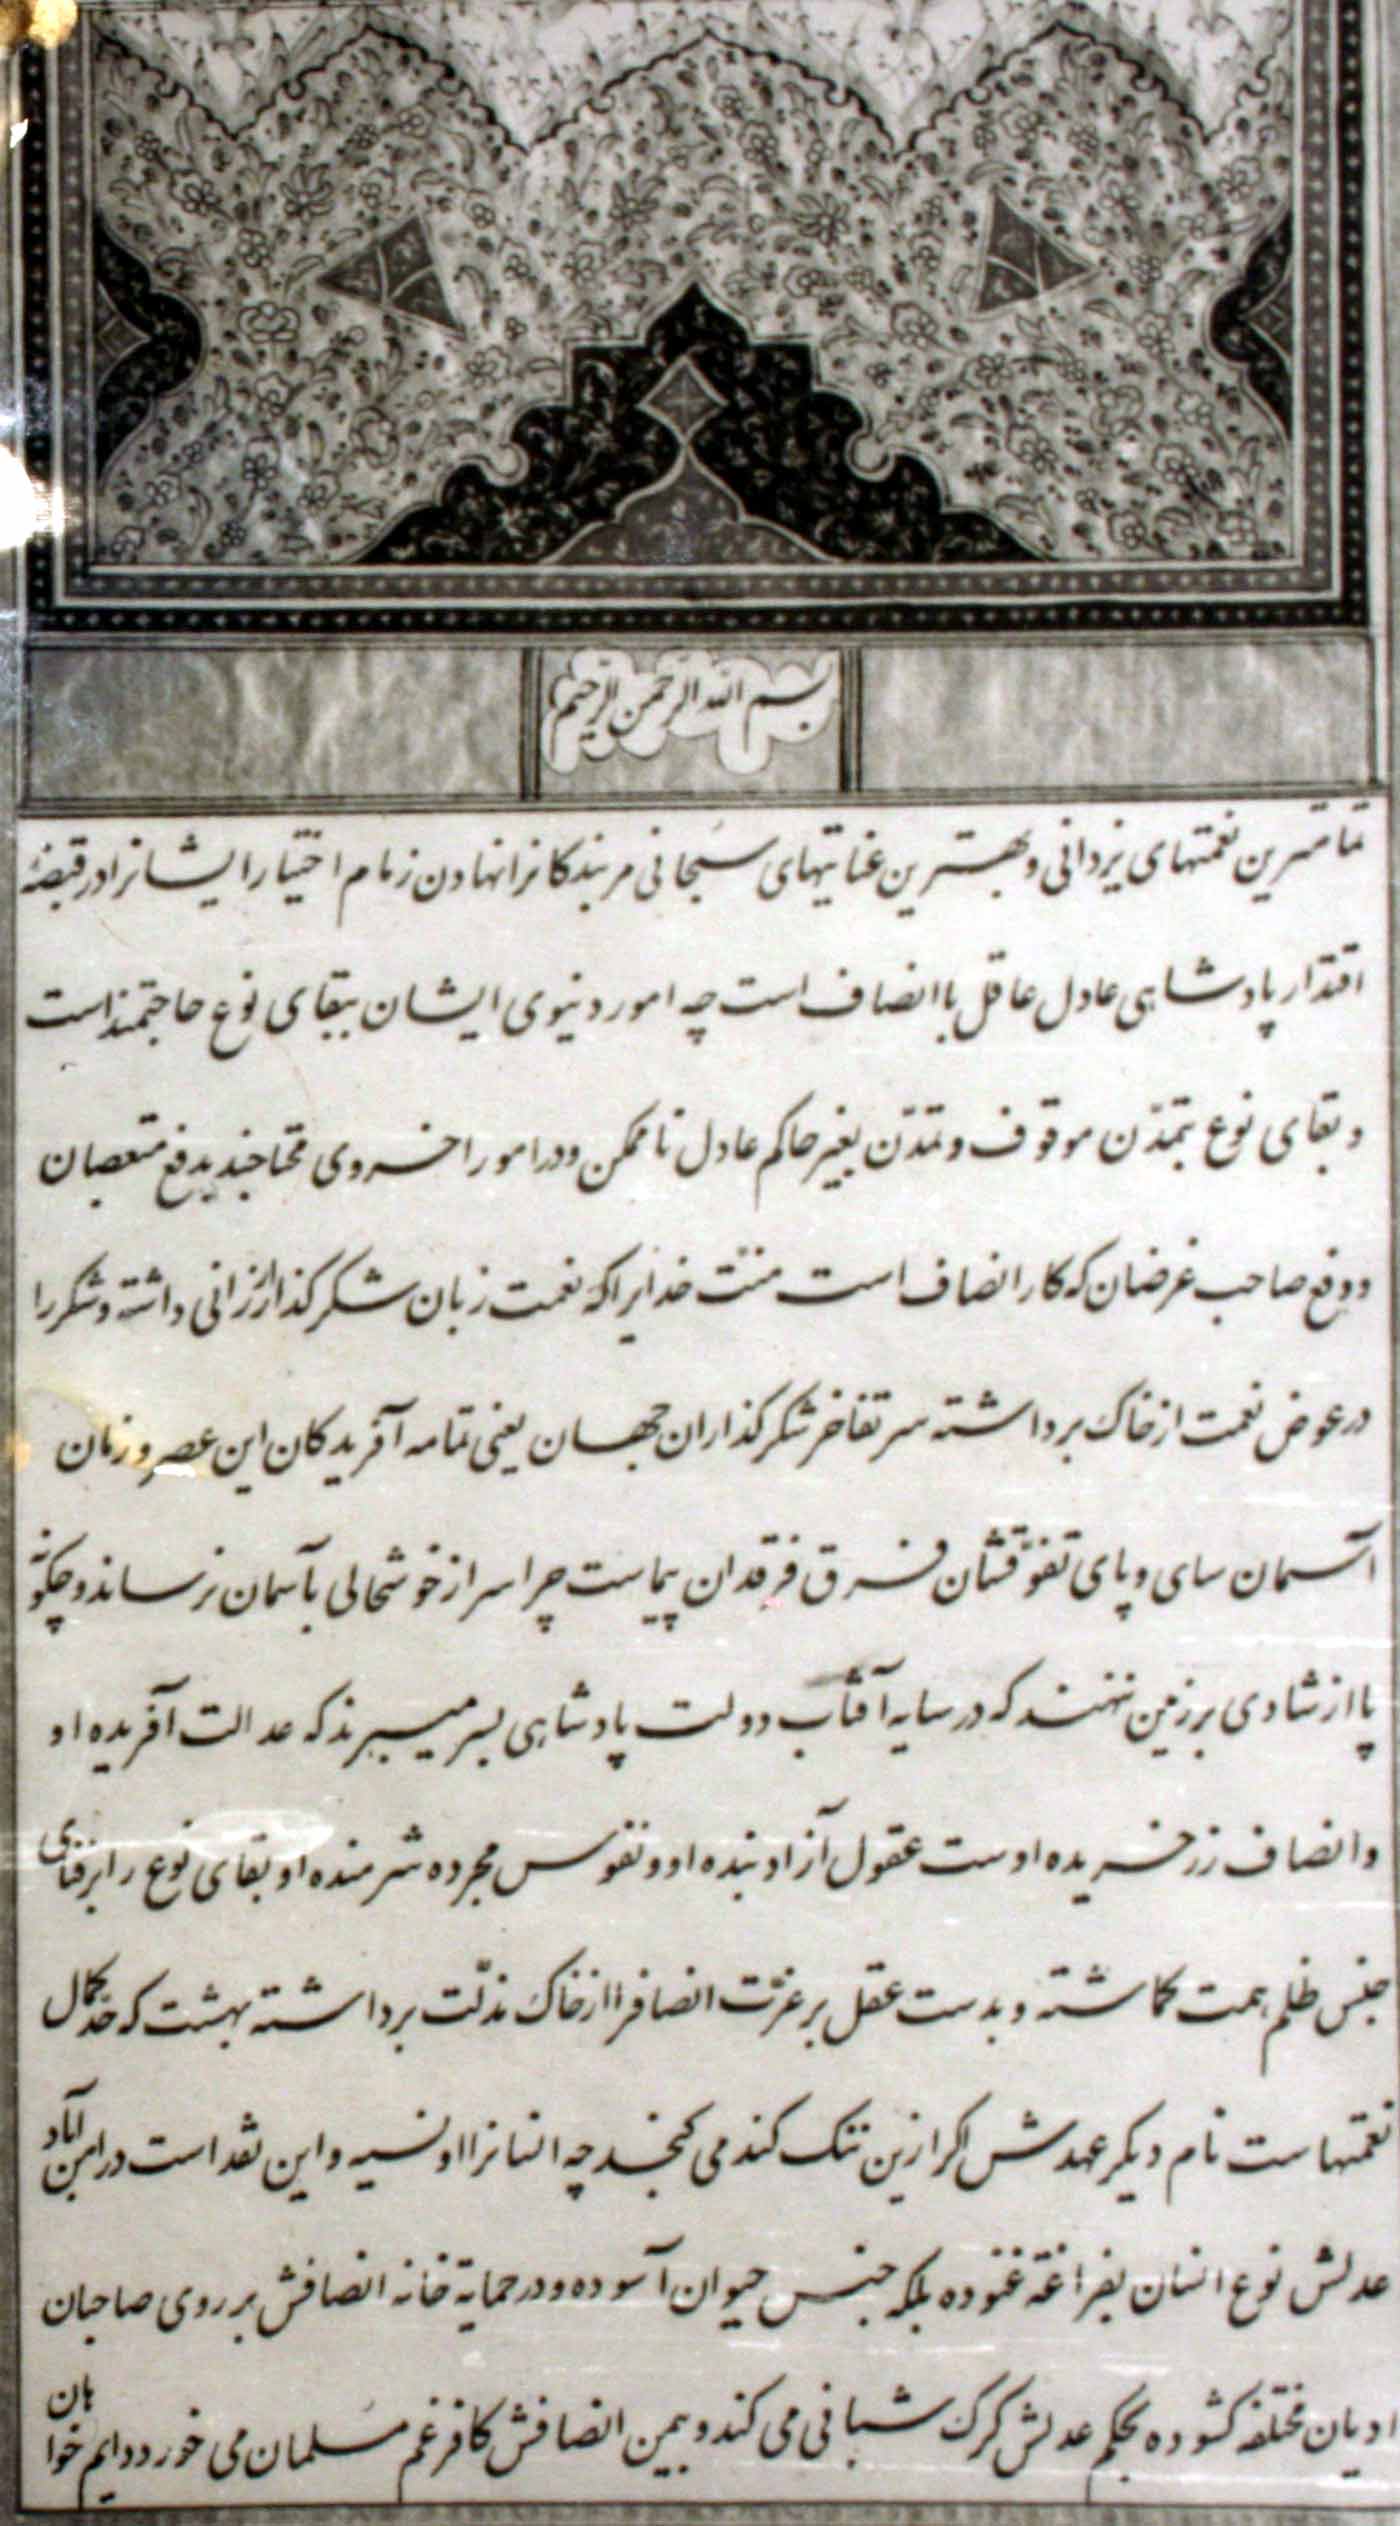 بسم الله الرحمن الرحیم
تمامترین نعمتهای یزدانی و بهترین عنایتهای سبحانی مر بندکانرا نهادن زمام اختیار ایشانرا در قبضهٔ
اقتدار پادشاهی عادل عاقل باانصاف است چه امور دنیوی ایشان ببقای نوع حاجتمند است
و بقای نوع بتمدّن موقوف و تمدّن بغیر حاکم عادل ناممکن و در امور اخروی محتاجند بدفع متعصبان
و دفع صاحب غرضان که کار انصاف است منّت خدایرا که نعمت زبان شکر کذار ارزانی داشته و شکر را
در عوض نعمت از خاک برداشته سر تفاخر شکر کذاران جهان یعنی تمامه آفریدکان این عصر و زمان
آسمان سای و پای تفوّقشان فرق فرقدان پیماست چرا سر از خوشحالی بآسمان نرساند و چکونه
پا از شادی بر زمین ننهند که در سایه آفتاب دولت پادشاهی بسر میبرند که عدالت آفریده او
و انصاف زرخریده اوست عقول آزاد بنده او و نفوس مجرده شرمنده او بقای نوع را بر فنای
جنس ظلم همت کماشته و بدست عقل بر عزّت انصافرا از خاک مذلّت برداشته بهشت که حد کمال
نعمتهاست نام دیکر عهدش اکر ازین تنک کند می کنجد چه انسانرا او نسیه و این نقد است در امن آباد
عدلش نوع انسان بفراغة غنوده بلکه جنس حیوان آسوده و در حمایة خانه انصافش بر روی صاحبان
ادیان مختلفه کشوده بحکم عدلش کرک شبانی می کند و بیمن انصافش کافر غم مسلمان می خورد دایم خواهان